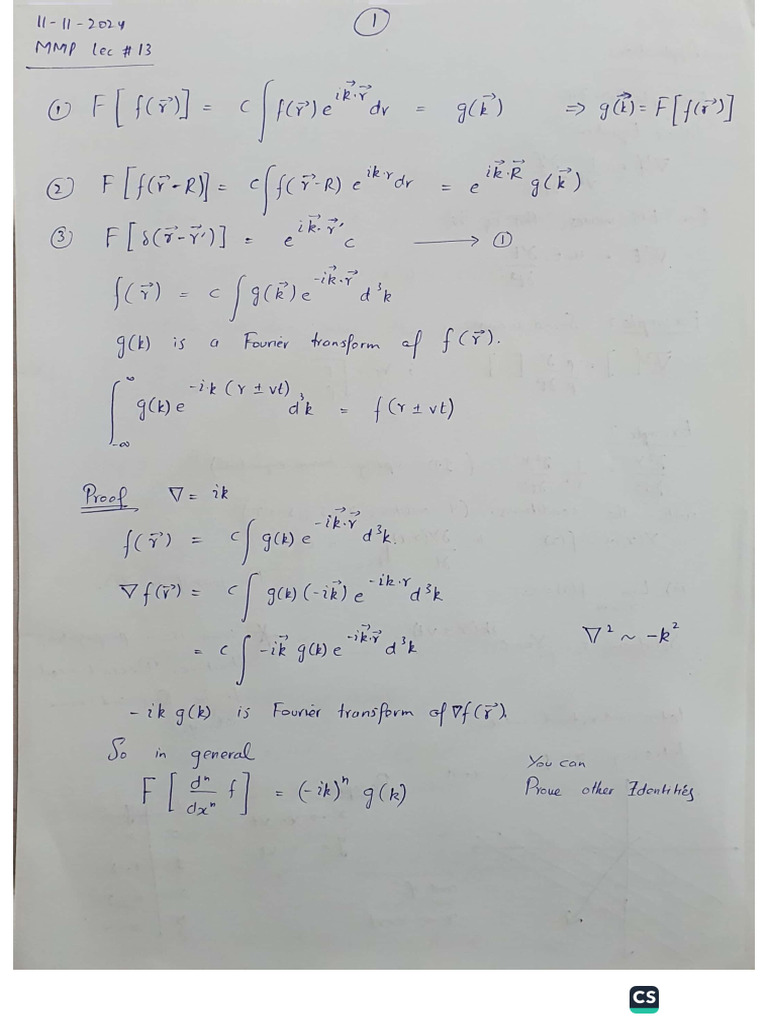 11-11-2024
①
MMP lec # 13
① F[f(r⃗)] = c∫f(r⃗)e^{ik⃗·r⃗}dr = g(k⃗) ⇒ g(k⃗) = F[f(r⃗)]
② F[f(r⃗-R)] = c∫f(r⃗-R) e^{ik·r}dr = e^{ik⃗·R⃗} g(k⃗)
③ F[δ(r⃗-r⃗')] = e^{ik⃗·r⃗'} c ⟶ ①
f(r⃗) = c∫g(k⃗)e^{-ik⃗·r⃗}d³k
g(k) is a Fourier transform of f(r⃗).
∫_{-∞}^{∞} g(k)e^{-i·k(r±vt)}d³k = f(r±vt)
Proof ∇ = ik
f(r⃗) = c∫g(k)e^{-ik⃗·r⃗}d³k.
∇f(r⃗) = c∫g(k)(-ik⃗)e^{-ik·r}d³k
= c∫-ik⃗ g(k)e^{-ik⃗·r⃗}d³k ∇² ~ -k²
-ik g(k) is Fourier transform of ∇f(r⃗).
So in general
F[dⁿ/dxⁿ f] = (-ik)ⁿ g(k)
You can
Prove other Identities
CS